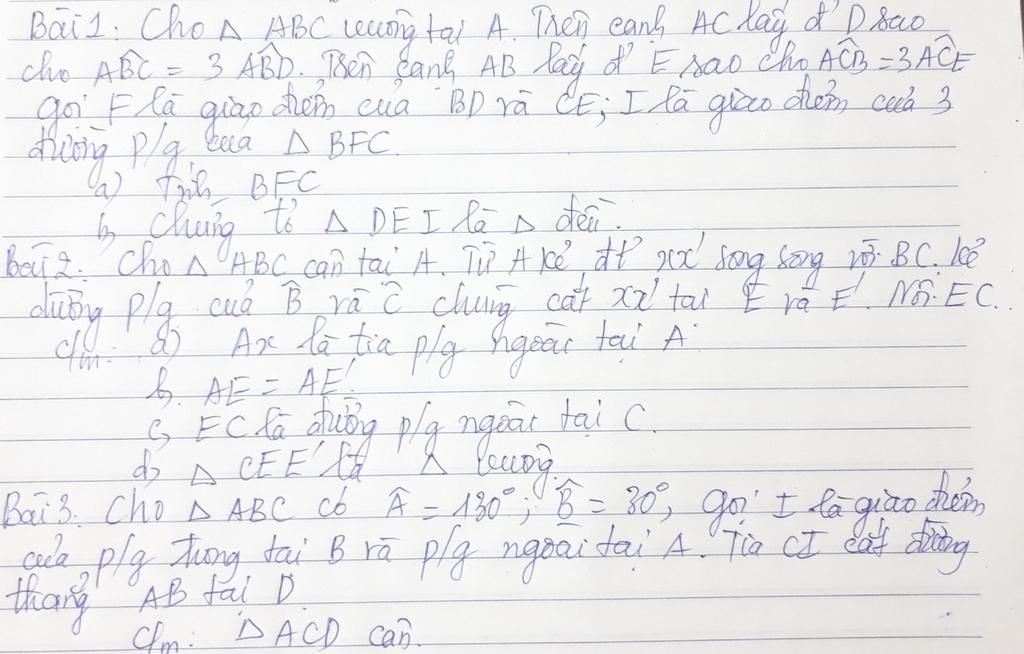 Bài 1: Cho △ ABC vuông tại A. Trên cạnh AC lấy đ' D sao
cho ABĈ = 3 AB̂D. Trên cạnh AB lấy đ' E sao cho AĈB = 3AĈE
gọi F là giao điểm của BD và CE; I là giao điểm của 3
đường p/g của △ BFC.
a) Tính BFC
b, Chứng tỏ △ DEI là △ đều.
Bài 2. Cho △ ABC cân tại A. Từ A kẻ đt xx' song song với BC. kẻ
đường p/g của B̂ và Ĉ chúng cắt xx' tại E và E'. Nối EC.
c/m: a) Ax là tia p/g ngoài tại A
b, AE = AE'.
c, EC là đường p/g ngoài tại C.
d, △ CEE' là △ vuông.
Bài 3. Cho △ ABC có Â = 130°; B̂ = 30°, gọi I là giao điểm
của p/g trong tại B và p/g ngoài tại A. Tia CI cắt đường
thẳng AB tại D
C/m: △ ACD cân.